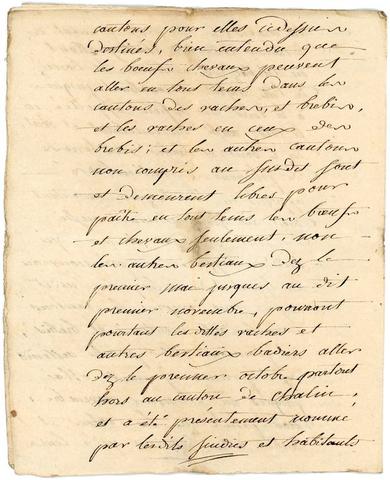 cantons pour elles cidessus
destinés, bien entendu que
les bœufs chevaux peuvent
aller en tout tems dans les
cantons des vaches, et brebis,
et les vaches en ceux des
brebis; et les autres cantons
non compris au susdes sont
et demeurent libres pour
paître en tout tems les bœufs
et chevaux seulement, non
les autres bestiaux Dez le
premier mai jusques au dit
premier novembre, pouront
pourtant les dittes vaches et
autres bestiaux aller
dez le premier octobre partout
hors au canton de chalin,
et a été présentement nommé
par lesdits sindics et habitants